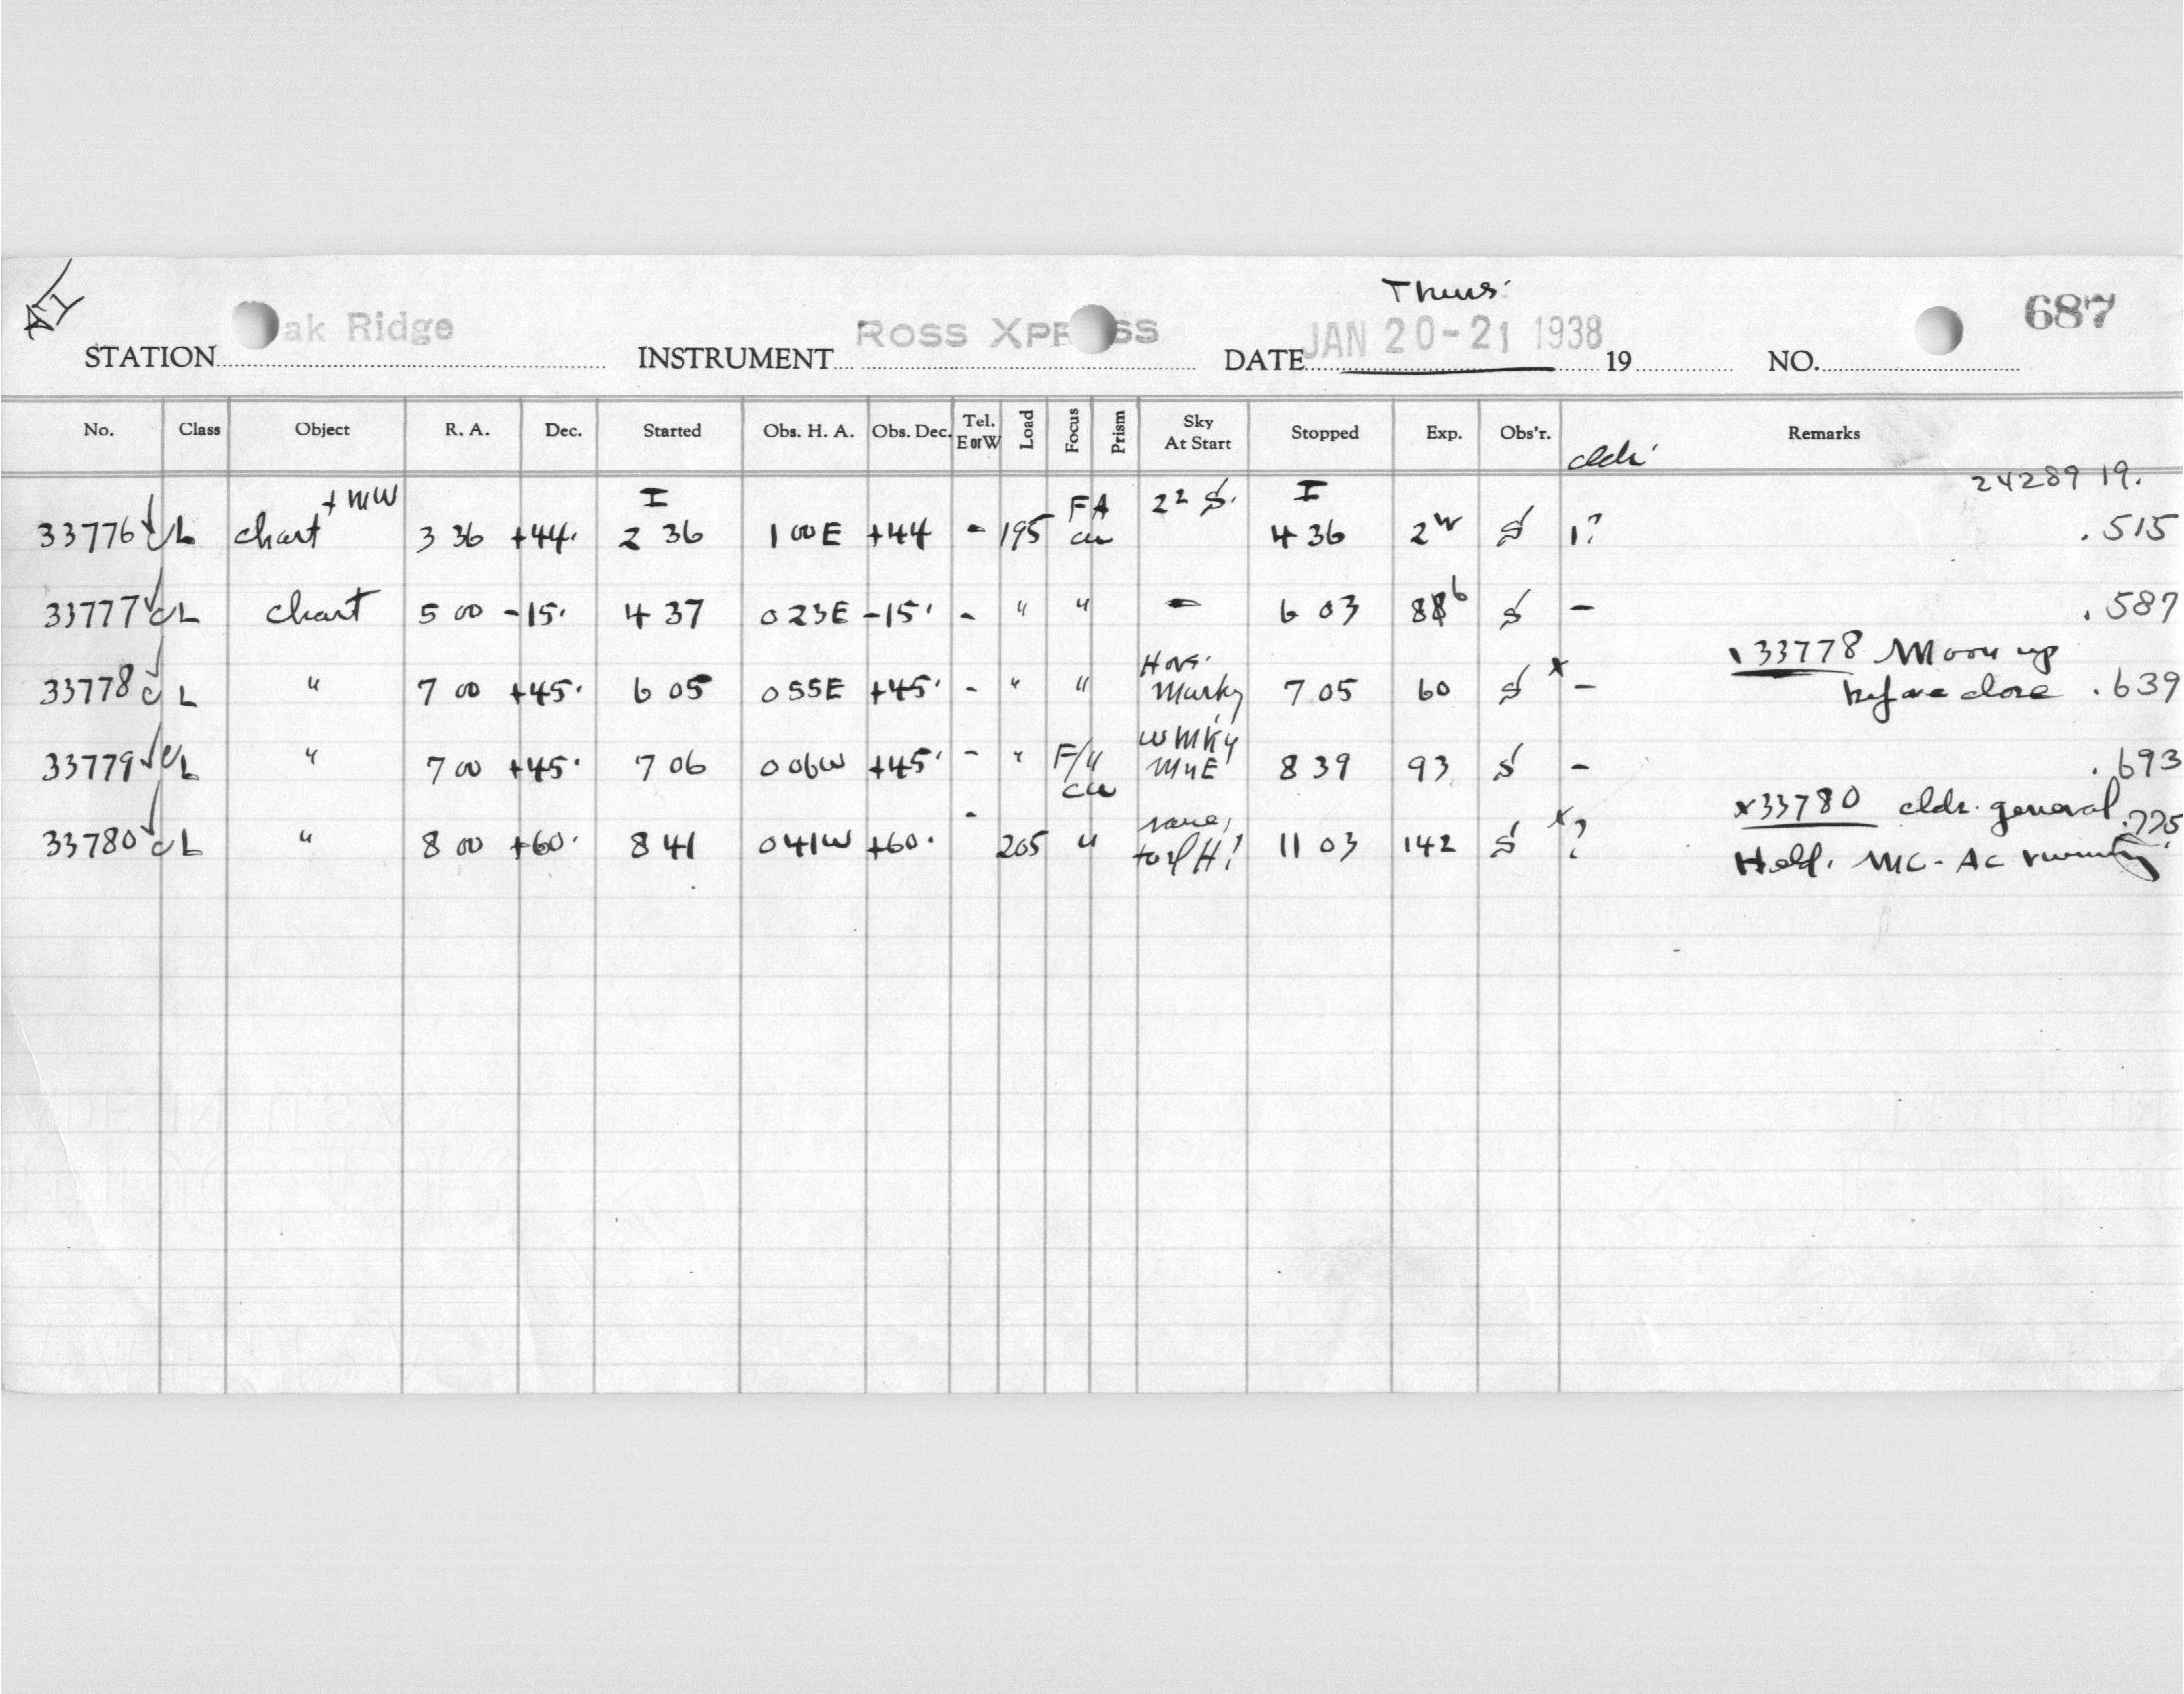 Thurs.
STATION Oak Ridge INSTRUMENT ROSS XPRESS DATE JAN 20-21 1938 19 NO. 687
No. Class Object R. A. Dec. Started Obs. H. A. Obs. Dec. Tel. E or W Load Focus Prism Sky At Start Stopped Exp. Obs'r. clds. Remarks
24289 19.
+ MW I FA 22 S. I
33776 CL chart 3 36 +44. 2 36 1 00 E +44 - 195 cu 4 36 2 S 1? .515
33777 CL chart 5 00 -15. 4 37 0 23E -15. - " " - 6 03 86 S - .587
Hors. 33778 Moon up
33778 CL " 7 00 +45. 6 05 0 55E +45. - " " Murky 7 05 60 S x - before close .639
W MKy
33779 CL " 7 00 +45. 7 06 0 06W +45. - " F/4 cu 8 39 93 S - .693
same, x33780 clds. general .775
33780 CL " 8 00 +60. 8 41 0 41W +60. - 205 " 11 03 142 S x ?
MC - AC